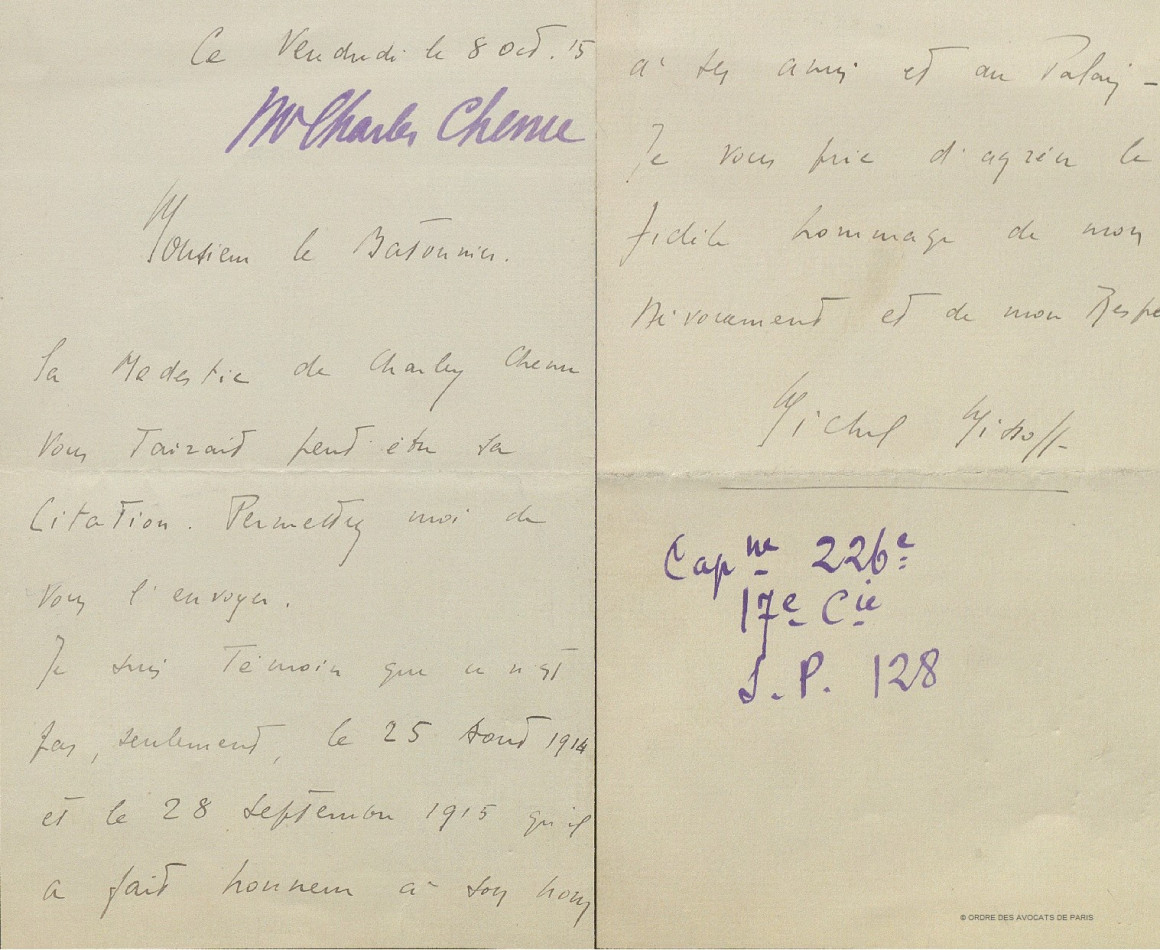 Ce Vendredi le 8 Oct. 15
Me Charles Chenu
Monsieur le Batonnier.
La Modestie de Charley Chenu
Vous Tairait peut être sa
Citation. Permettez moi de
vous l'envoyer.
Je suis Témoin que ce n'est
pas, seulement, le 25 Aout 1914
et le 28 Septembre 1915 qu'il
a fait honneur à son nom
à ses amis et au Palais -
Je vous prie d'agréer le
fidèle hommage de mon
Dévouement et de mon Respe
Michel Missoff
Cap ne 226e
17e Cie
S. P. 128
© ORDRE DES AVOCATS DE PARIS